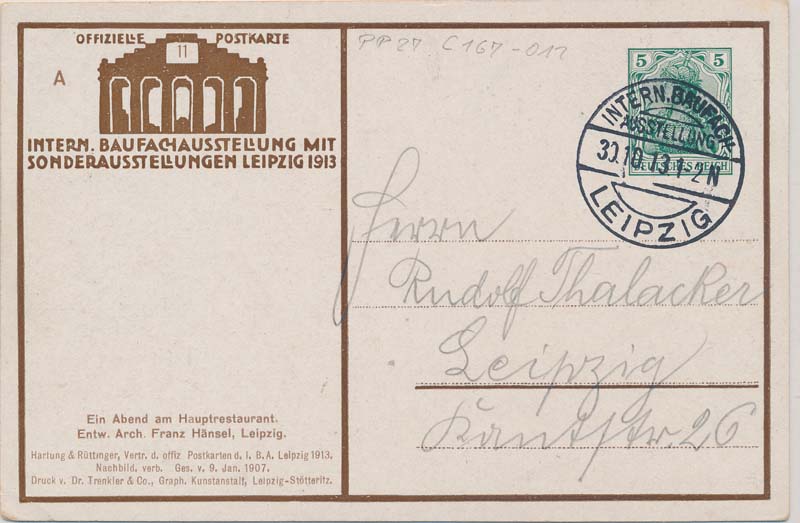 OFFIZIELLE POSTKARTE
11
A
INTERN. BAUFACHAUSSTELLUNG MIT
SONDERAUSSTELLUNGEN LEIPZIG 1913
Ein Abend am Hauptrestaurant.
Entw. Arch. Franz Hänsel, Leipzig.
Hartung & Rüttinger, Vertr. d. offiz Postkarten d. I. B. A. Leipzig 1913.
Nachbild. verb. Ges. v. 9. Jan. 1907.
Druck v. Dr. Trenkler & Co., Graph. Kunstanstalt, Leipzig-Stötteritz.
PP27 C167-011
5 5
DEUTSCHES REICH
INTERN. BAUFACH-
AUSSTELLUNG
30.10.13.1-2N
LEIPZIG
Herrn
Rudolf Thalacker
Leipzig
Kantstr. 26